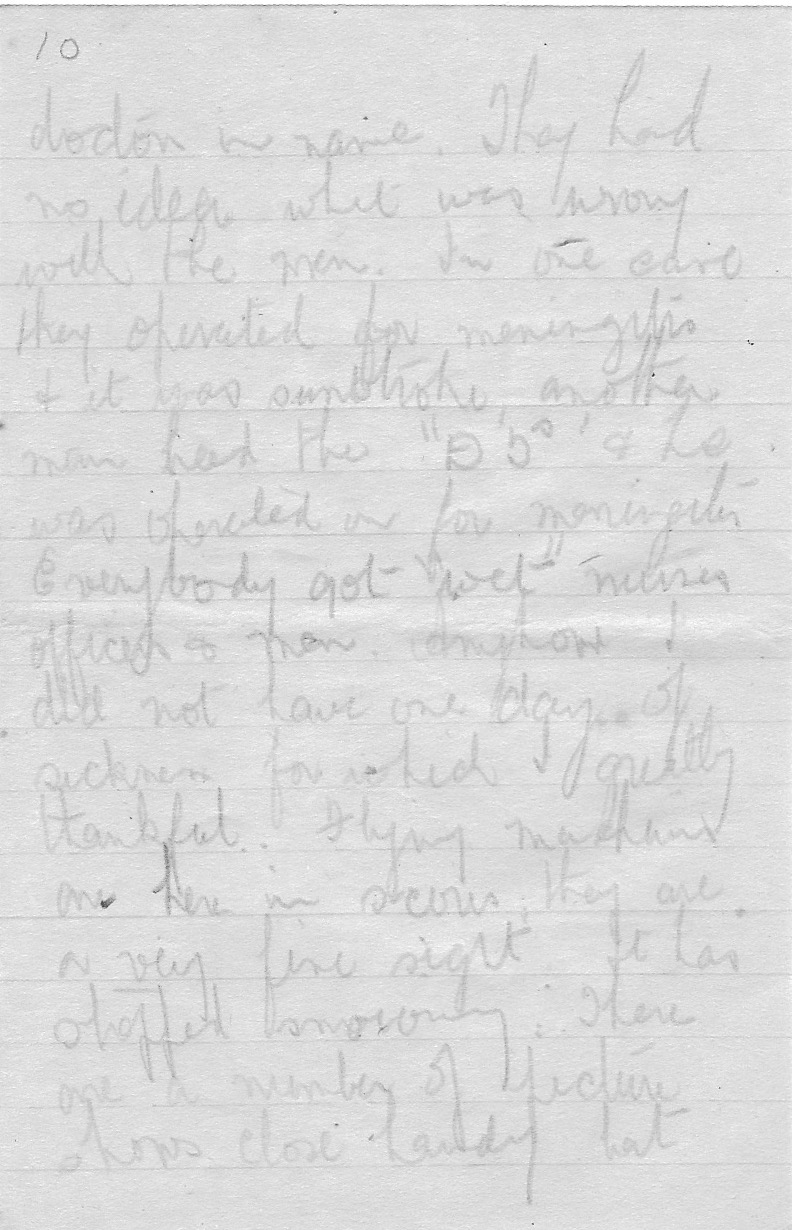 10
doctors in name. They had
no idea what was wrong
with the men. In one case
they operated for meningitis
& it was sunstroke, another
man had the "D T's" & he
was operated on for meningitis
Everybody got "wet" nurses
officers & men. Anyhow I
did not have one day of
sickness for which I greatly
thankful. Flying machines
are here in scores, they are
a very fine sight. It has
stopped snowing. There
are a number of picture
shows close handy but